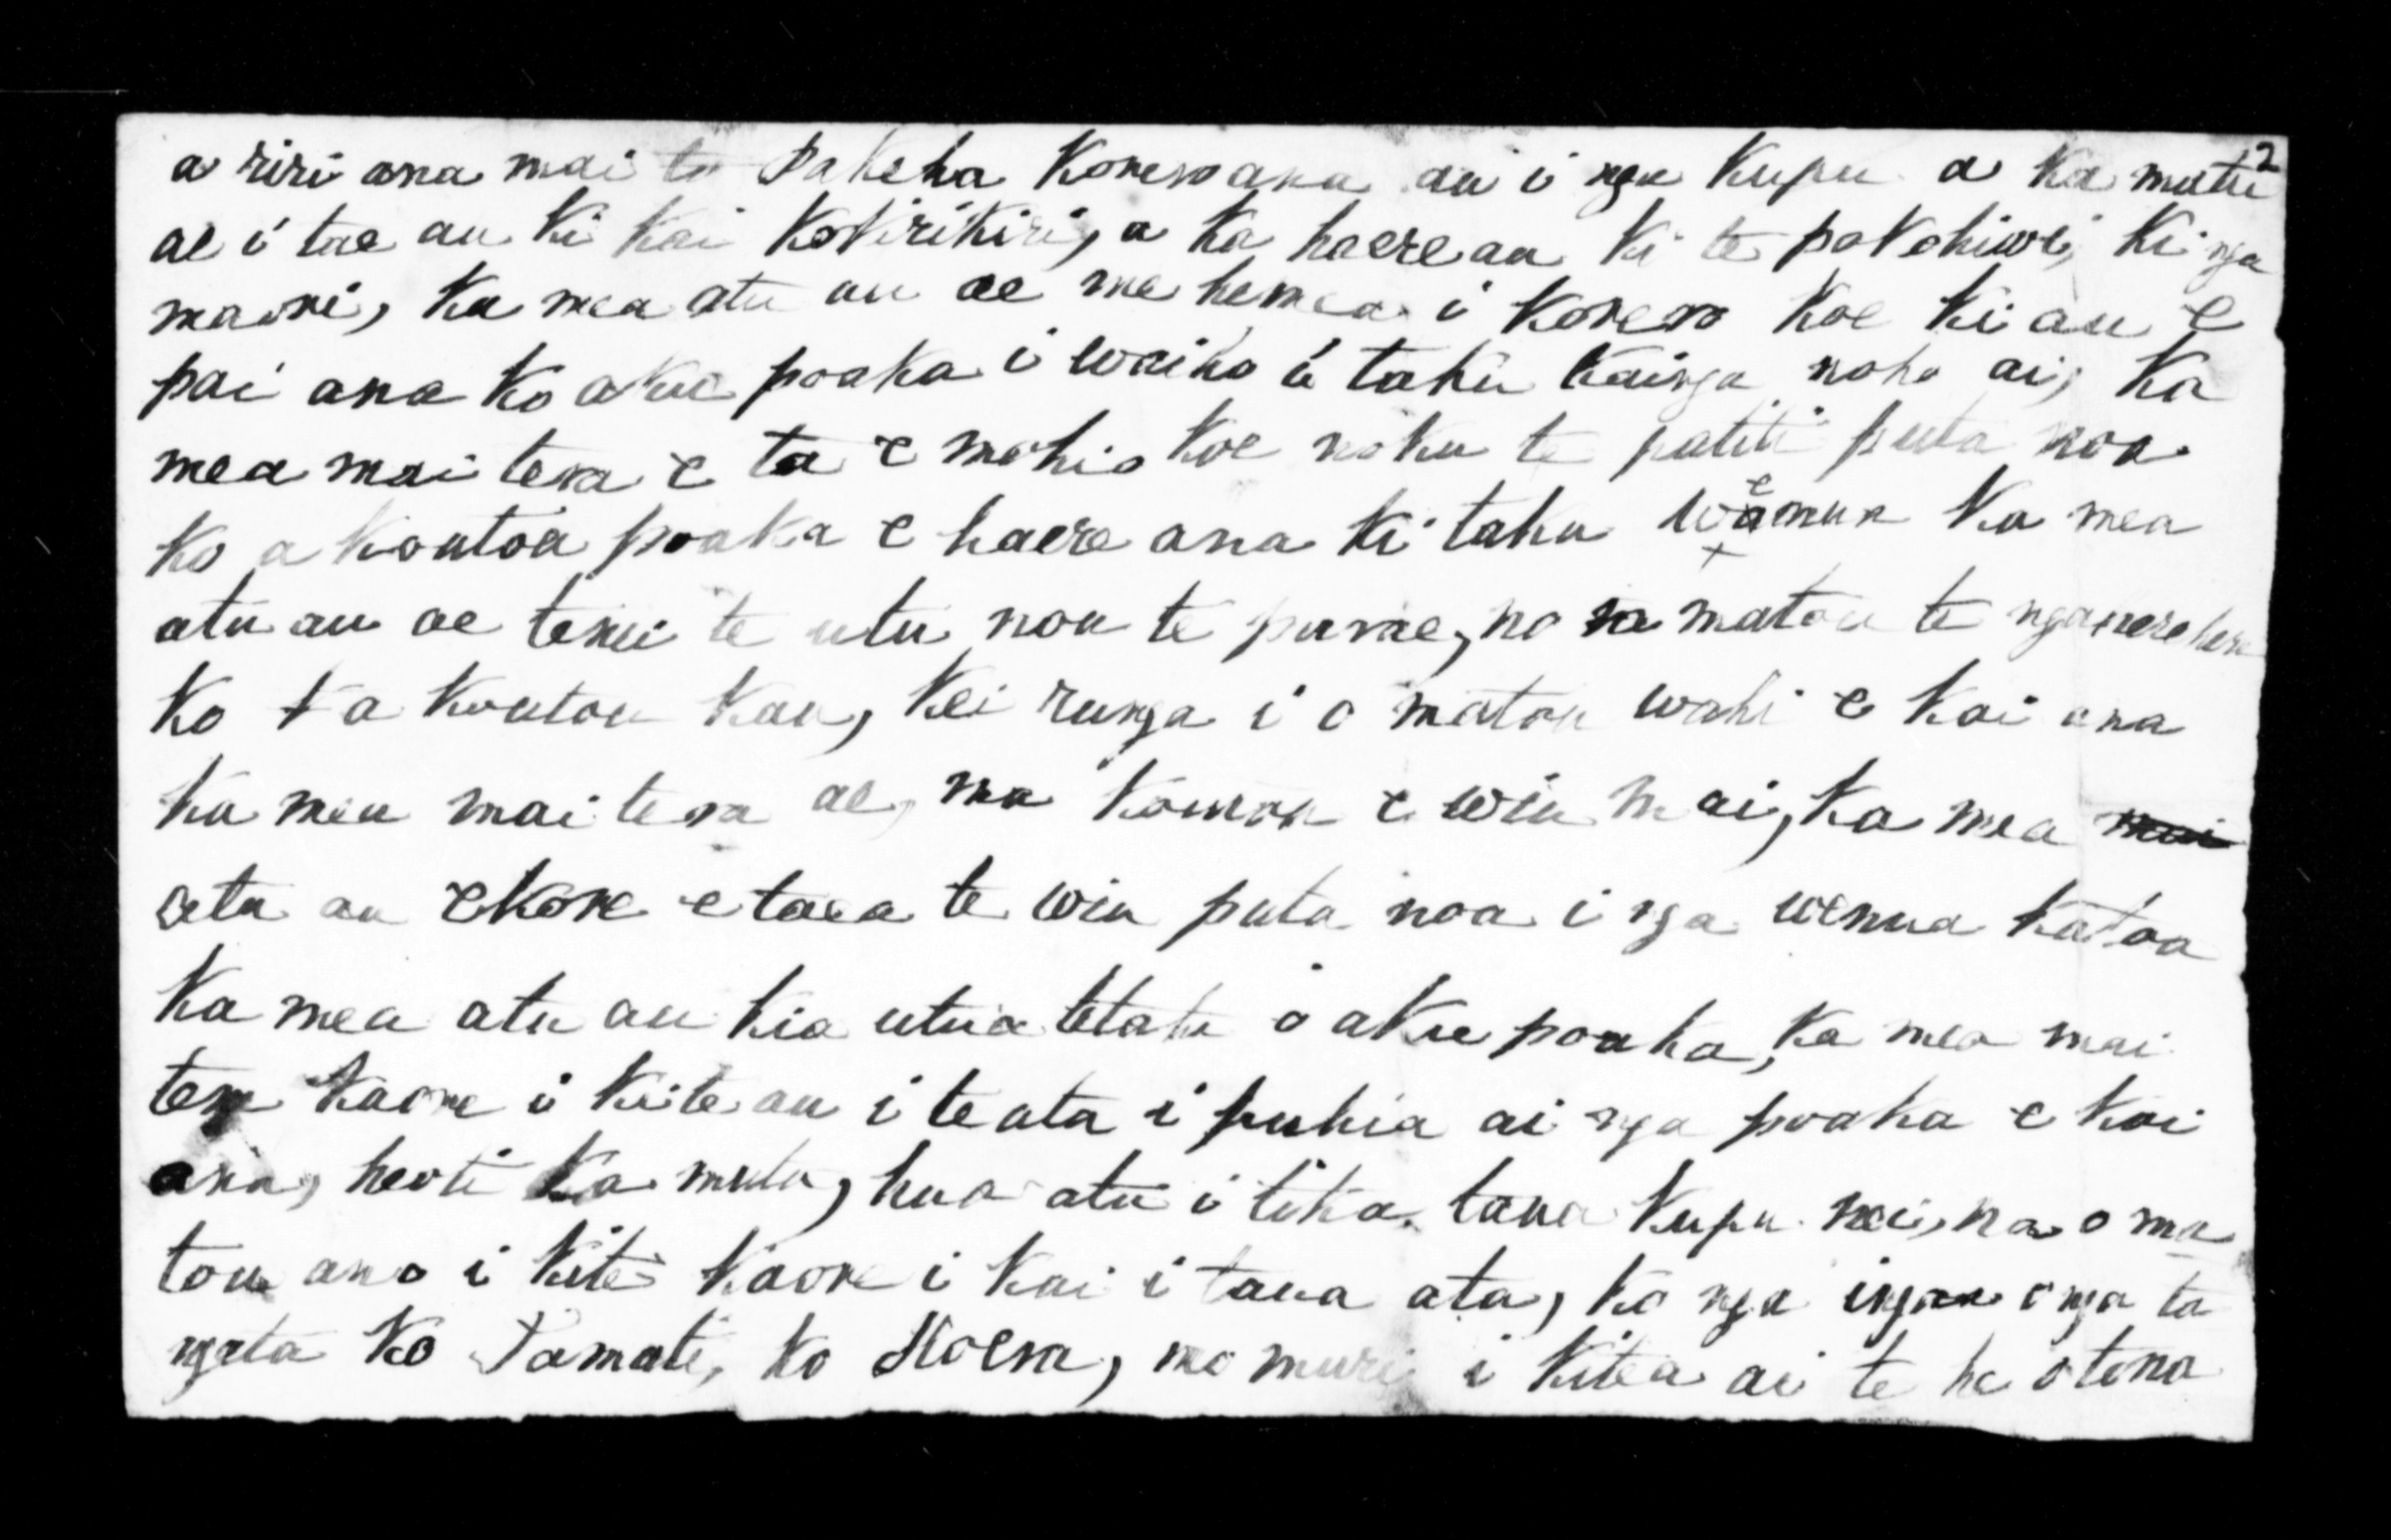 2
a riri ana mai te Pakeha Koreroana au i nga Kupu a Ka mutu
ae i tae au Ki Kai Kokirikiri, a Ka haere au Ki te pakohiwi, Ki nga
maori, Ka mea atu au ae me hemea i Korero Koe Ki au e
pai ana Ko aku poaka i waiho i taku Kainga noho ai, Ka
mea mai tera e ta e mohio Koe noku te patiti puta noa
Ko a Koutou poaka e haere ana Ki taku wenua Ka mea
atu au ae tenei te utu nou te purae, no matou te ngaherehere
Ko ta Koutou Kau, Kei runga i o matou wahi e Kai ana
Ka mea mai tera ae, ma Koutou e wiu mai, Ka mea mai
atu au eKore e taea te wiu puta noa i nga wenua Katoa
Ka mea atu au Kia utua tetahi o aku poaka, Ka mea mai
tera Kaore i Kite au i te ata i puhia ai nga poaka e Kai
ana, heoti Ka mutu, hua atu i tika taua Kupu nei, na o ma
tou ano i Kite Kaore i Kai i taua ata, Ko nga ingoa o nga ta
ngata Ko Tamati, Ko Hoera, no muri i Kitea ai te he o tona